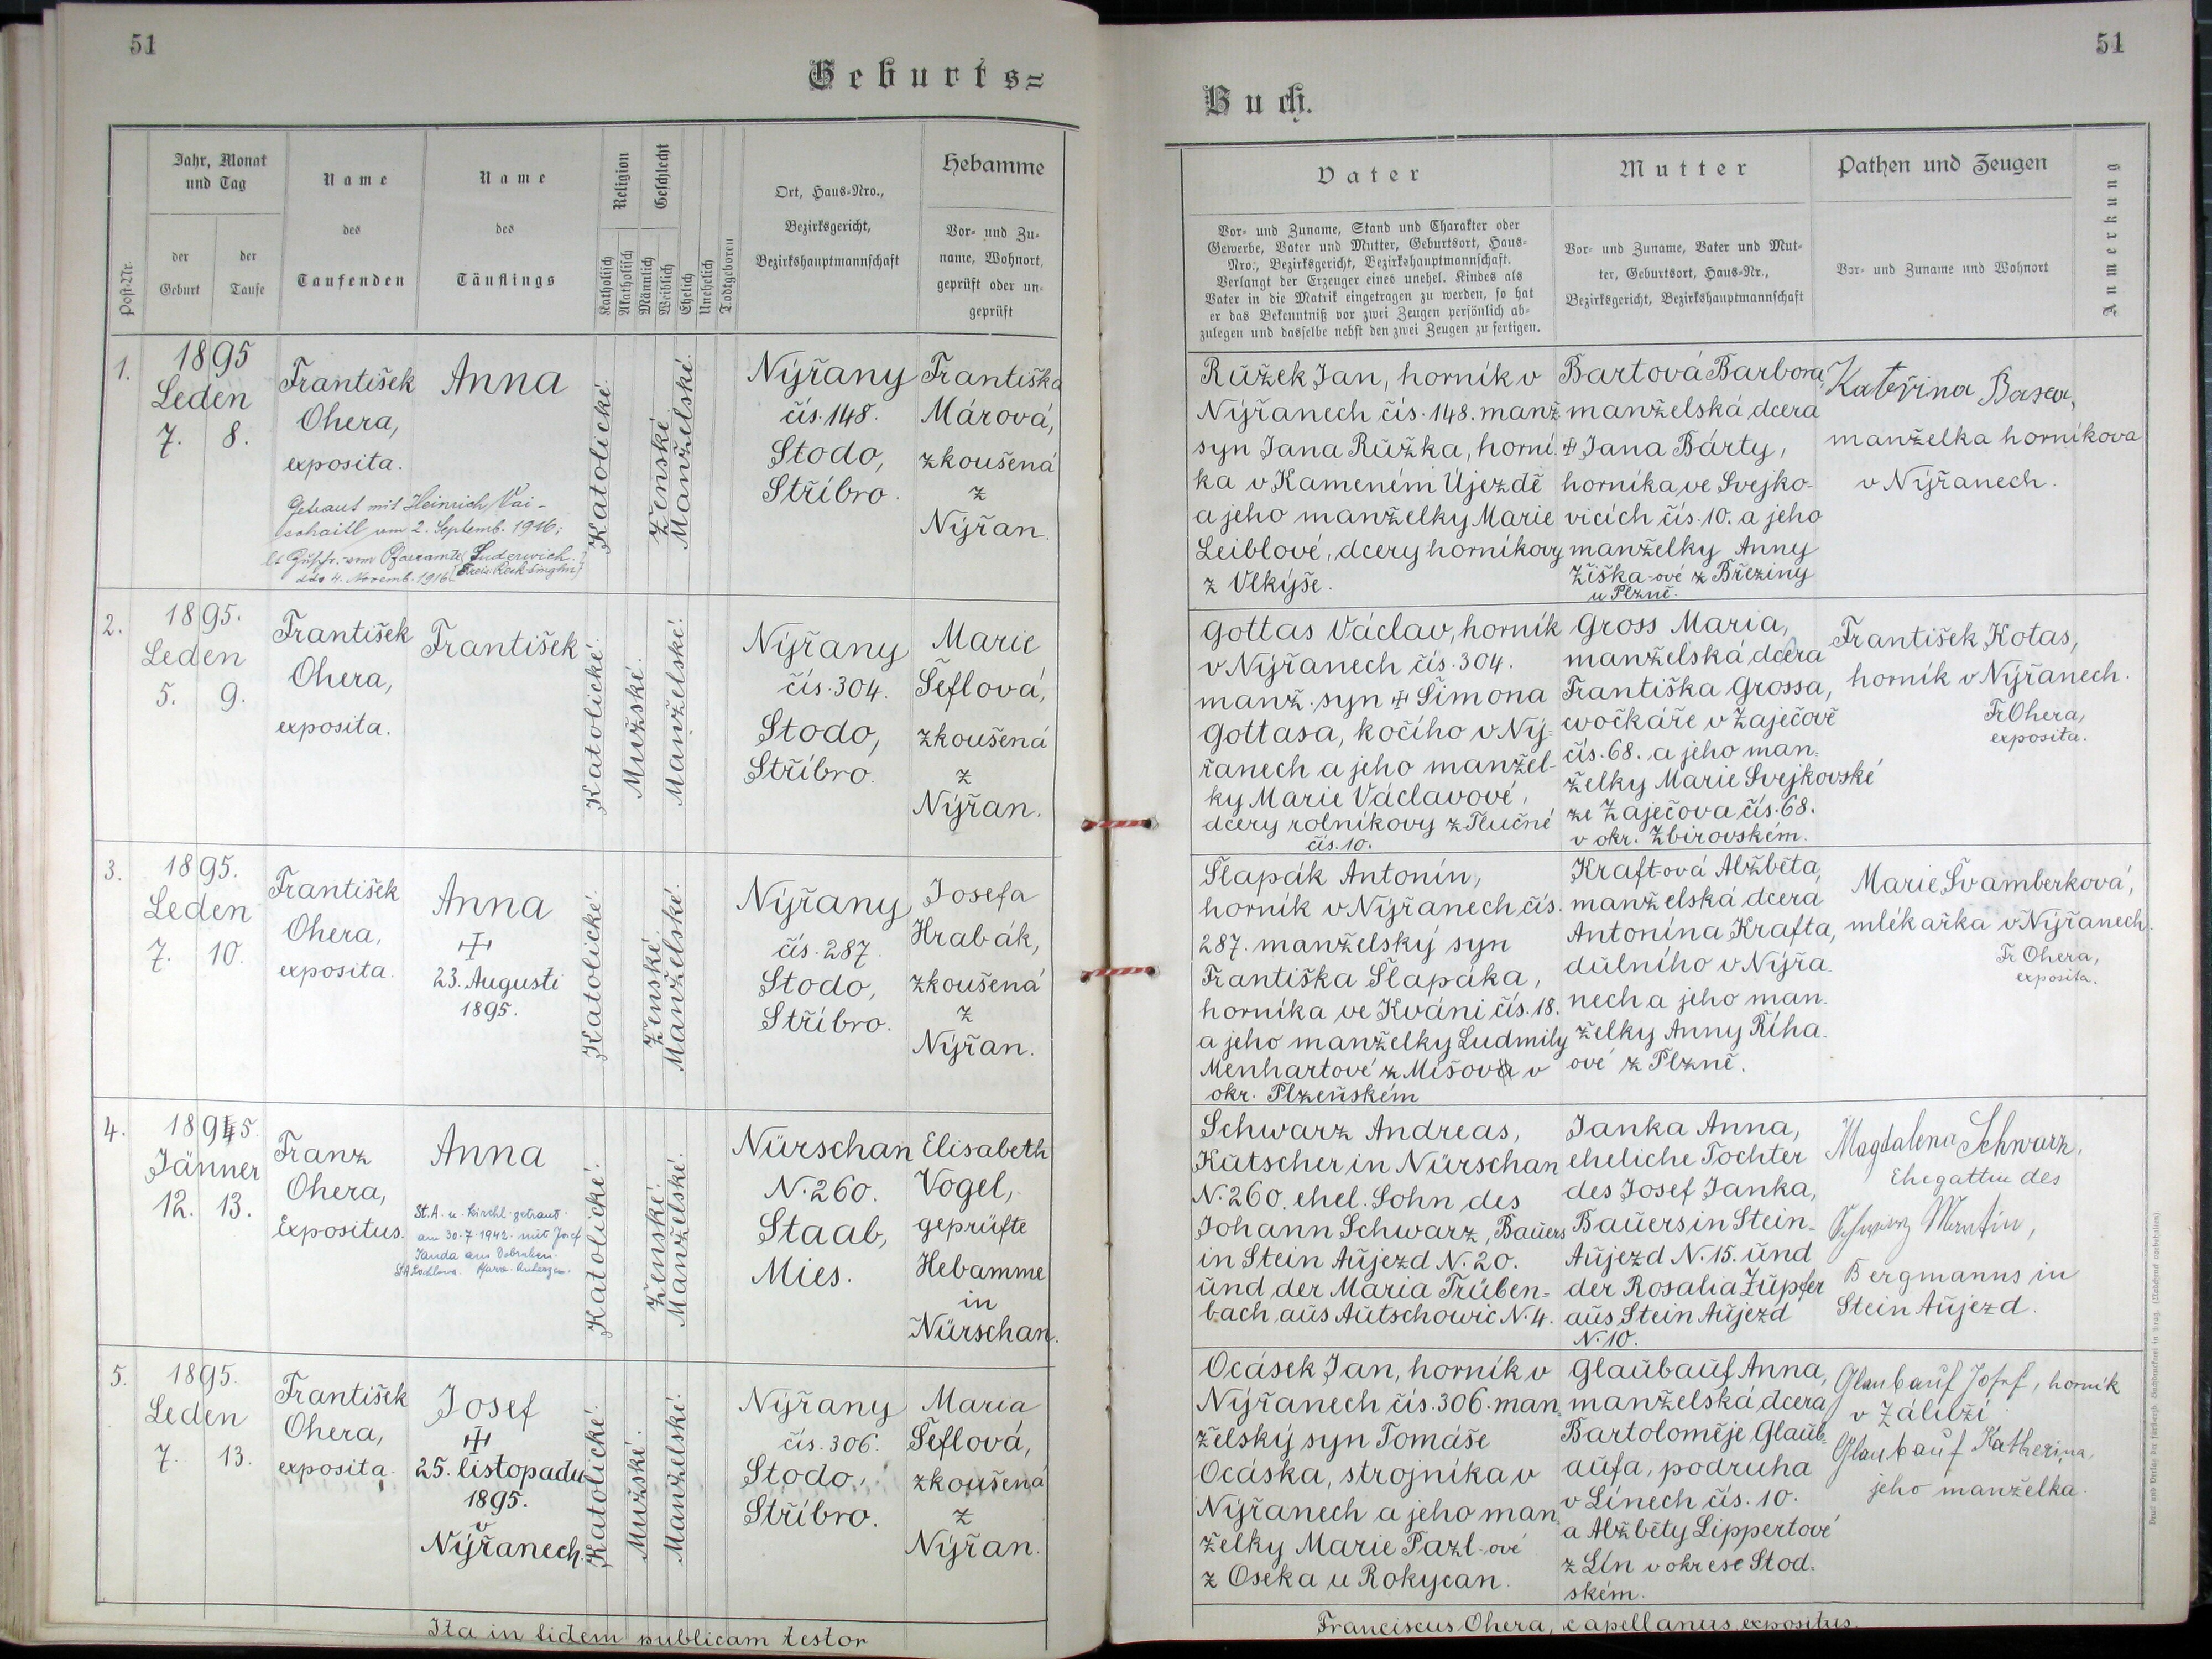 51
Geburts=
Post-Nr.
Jahr, Monat
und Tag
der
Geburt
der
Taufe
Name
des
Taufenden
Name
des
Täuflings
Religion
Katholisch
Akatholisch
Geschlecht
Männlich
Weiblich
Ehelich
Unehelich
Todtgeboren
Ort, Haus-Nro.,
Bezirksgericht,
Bezirkshauptmannschaft
Hebamme
Vor- und Zu-
name, Wohnort,
geprüft oder un-
geprüft
1.
1895
Leden
7. 8.
František
Ohera,
exposita.
Anna
Getraut mit Heinrich Vai-
schaitl am 2. Septemb. 1916;
Pfarramte Suderwich
ddo 4. Novemb. 1916
Katolické.
Ženské.
Manželské.
Nýřany
čís. 148.
Stodo,
Stříbro.
Františka
Márová,
zkoušená
z
Nýřan.
2.
1895.
Leden
5. 9.
František
Ohera,
exposita.
František
Katolické.
Mužské.
Manželské.
Nýřany
čís. 304.
Stodo,
Stříbro.
Marie
Šeflová,
zkoušená
z
Nýřan.
3.
1895.
Leden
7. 10.
František
Ohera,
exposita.
Anna
✠
23. Augusti
1895.
Katolické.
Ženské.
Manželské.
Nýřany
čís. 287.
Stodo,
Stříbro.
Josefa
Hrabák,
zkoušená
z
Nýřan.
4.
1895.
Jänner
12. 13.
Franz
Ohera,
Expositus.
Anna
St.A. u. kirchl. getraut
am 30.7.1942 mit Josef
Janda aus Dobraken.
Katolické.
Ženské.
Manželské.
Nürschan
N. 260.
Staab,
Mies.
Elisabeth
Vogel,
geprüfte
Hebamme
in
Nürschan.
5.
1895.
Leden
7. 13.
František
Ohera,
exposita.
Josef
✠
25. listopadu
1895.
v
Nýřanech.
Katolické.
Mužské.
Manželské.
Nýřany
čís. 306.
Stodo,
Stříbro.
Maria
Šeflová,
zkoušená
z
Nýřan.
Ita in fidem publicam testor
51
Buch.
Vater
Vor- und Zuname, Stand und Charakter oder
Gewerbe, Vater und Mutter, Geburtsort, Haus-
Nro., Bezirksgericht, Bezirkshauptmannschaft.
Verlangt der Erzeuger eines unehel. Kindes als
Vater in die Matrik eingetragen zu werden, so hat
er das Bekenntniß vor zwei Zeugen persönlich ab-
zulegen und dasselbe nebst den zwei Zeugen zu fertigen.
Mutter
Vor- und Zuname, Vater und Mut-
ter, Geburtsort, Haus-Nr.,
Bezirksgericht, Bezirkshauptmannschaft
Pathen und Zeugen
Vor- und Zuname und Wohnort
Anmerkung
Růžek Jan, horník v
Nýřanech čís. 148. manž.
syn Jana Růžka, horní-
ka v Kameném Újezdě
a jeho manželky Marie
Leiblové, dcery horníkovy
z Vlkýše.
Bartová Barbora,
manželská dcera
✠ Jana Bárty,
horníka, ve Svejko-
vicích čís. 10. a jeho
manželky Anny
Žiška-ové z Březiny
u Plzně.
Kateřina
manželka horníkova
v Nýřanech.
Gottas Václav, horník
v Nýřanech čís. 304.
manž. syn ✠ Šimona
Gottasa, kočího v Ný-
řanech a jeho manžel-
ky Marie Václavové,
dcery rolníkovy z Tlučné
čís. 10.
Gross Maria,
manželská dcera
Františka Grossa,
cvočkáře v Zaječově
čís. 68. a jeho man-
želky Marie Svejkovské
ze Zaječova čís. 68.
v okr. Zbirovském.
František Kotas,
horník v Nýřanech.
Fr Ohera,
exposita.
Šlapák Antonín,
horník v Nýřanech čís.
287. manželský syn
Františka Šlapáka,
horníka ve Kváni čís. 18.
a jeho manželky Ludmily
Menhartové z Míšova v
okr. Plzeňském
Kraft-ová Alžběta,
manželská dcera
Antonína Krafta,
důlního v Nýřa-
nech a jeho man-
želky Anny Říha-
ové z Plzně.
Marie Švamberková,
mlékařka v Nýřanech.
Fr Ohera,
exposita.
Schwarz Andreas,
Kutscher in Nürschan
N. 260. ehel. Sohn des
Johann Schwarz, Bauers
in Stein Aujezd N. 20.
und der Maria Trüben-
bach aus Autschowic N. 4.
Janka Anna,
eheliche Tochter
des Josef Janka,
Bauers in Stein-
Aujezd N. 15. und
der Rosalia Zupfer
aus Stein Aujezd
N. 10.
Magdalena Schwarz,
Ehegattin des
Schwarz Martin,
Bergmanns in
Stein Aujezd.
Ocásek Jan, horník v
Nýřanech čís. 306. man-
želský syn Tomáše
Ocáska, strojníka v
Nýřanech a jeho man-
želky Marie Pazl-ové
z Oseka u Rokycan.
Glaubauf Anna,
manželská dcera
Bartoloměje Glaub-
aufa, podruha
v Línech čís. 10.
a Alžběty Lippertové
z Lín v okrese Stod-
ském.
Glaubauf Josef, horník
v Záluží
Glaubauf Katherina,
jeho manželka.
Franciscus Ohera, capellanus expositus.